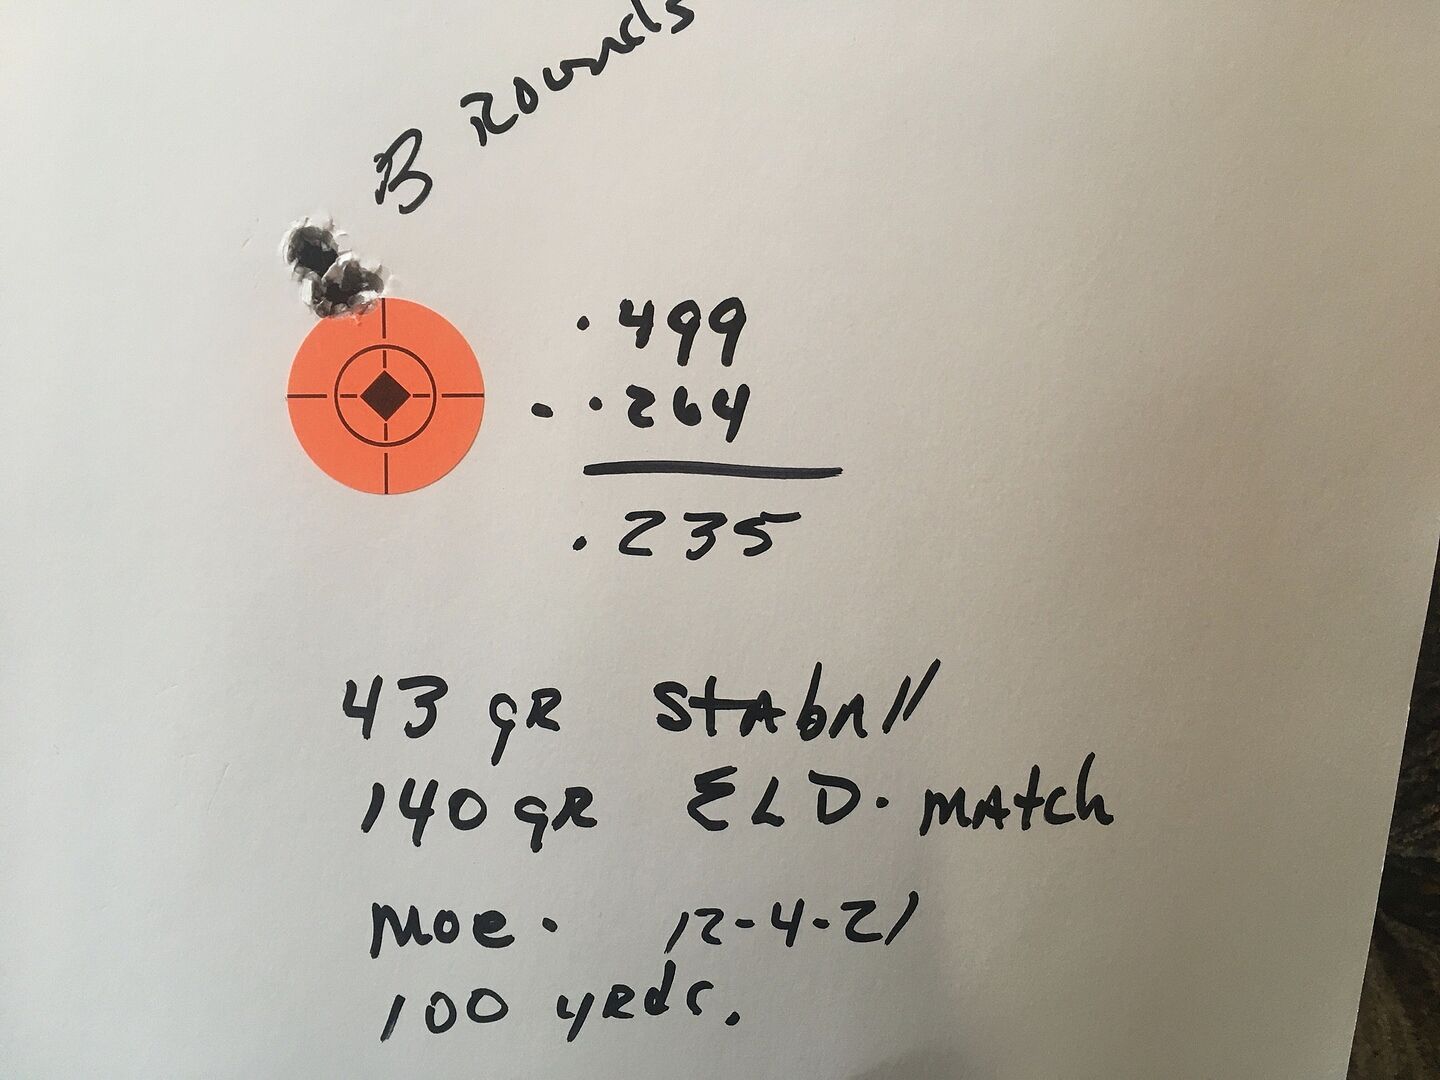 3 Rounds
.499
- .264
.235
43 gR StAbAll
140 gR ELD. mAtch
Moe. 12-4-21
100 yRds.